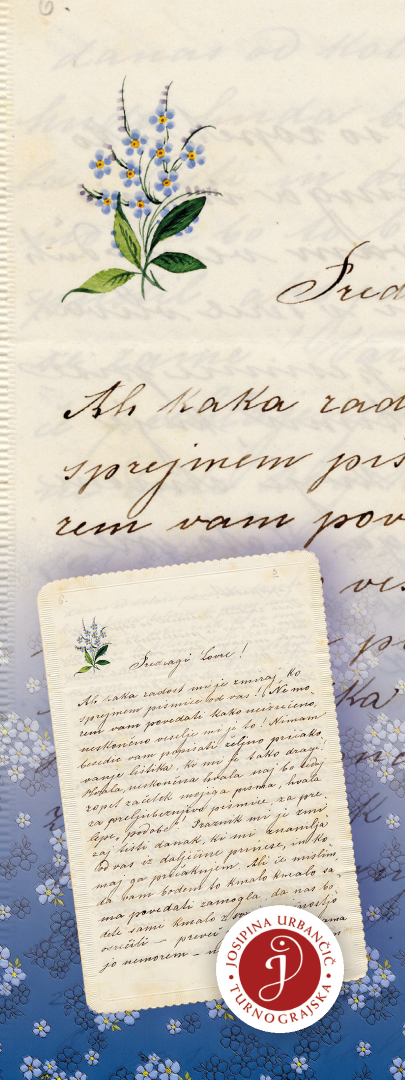 6.
Predr
Ah kaka rad
sprejmem pis
rem vam pov
ve
p
ka
k
6.
Predragi Lovre!
Ah kaka radost mi je zmiraj, ko
sprejmem pismice od vas! Ne mo-
rem vam povedati kako neizrečeno,
neskončno veselje mi je to! Nimam
besedic vam popisati željno pričako-
vanje listika, ki mi je tako dragi!
Hvala, neskončna hvala naj bo tedaj
zopet začetek mojega pisma, hvala
za preljubeznjivo pisimice, za pre-
lepo podobo! Praznik mi je zmi-
raj tisti danak, ki mi znamlja
od vas iz daljčine prinese, in ko-
maj ga pričakujem. Ali če mislim,
da vam bodem to kmalo kmalo sa-
ma povedati zamogla, da nas bo-
dete sami kmalo z
osrečili — preveč
jo nemorem —
JOSIPINA URBANČIČ
TURNOGRAJSKA